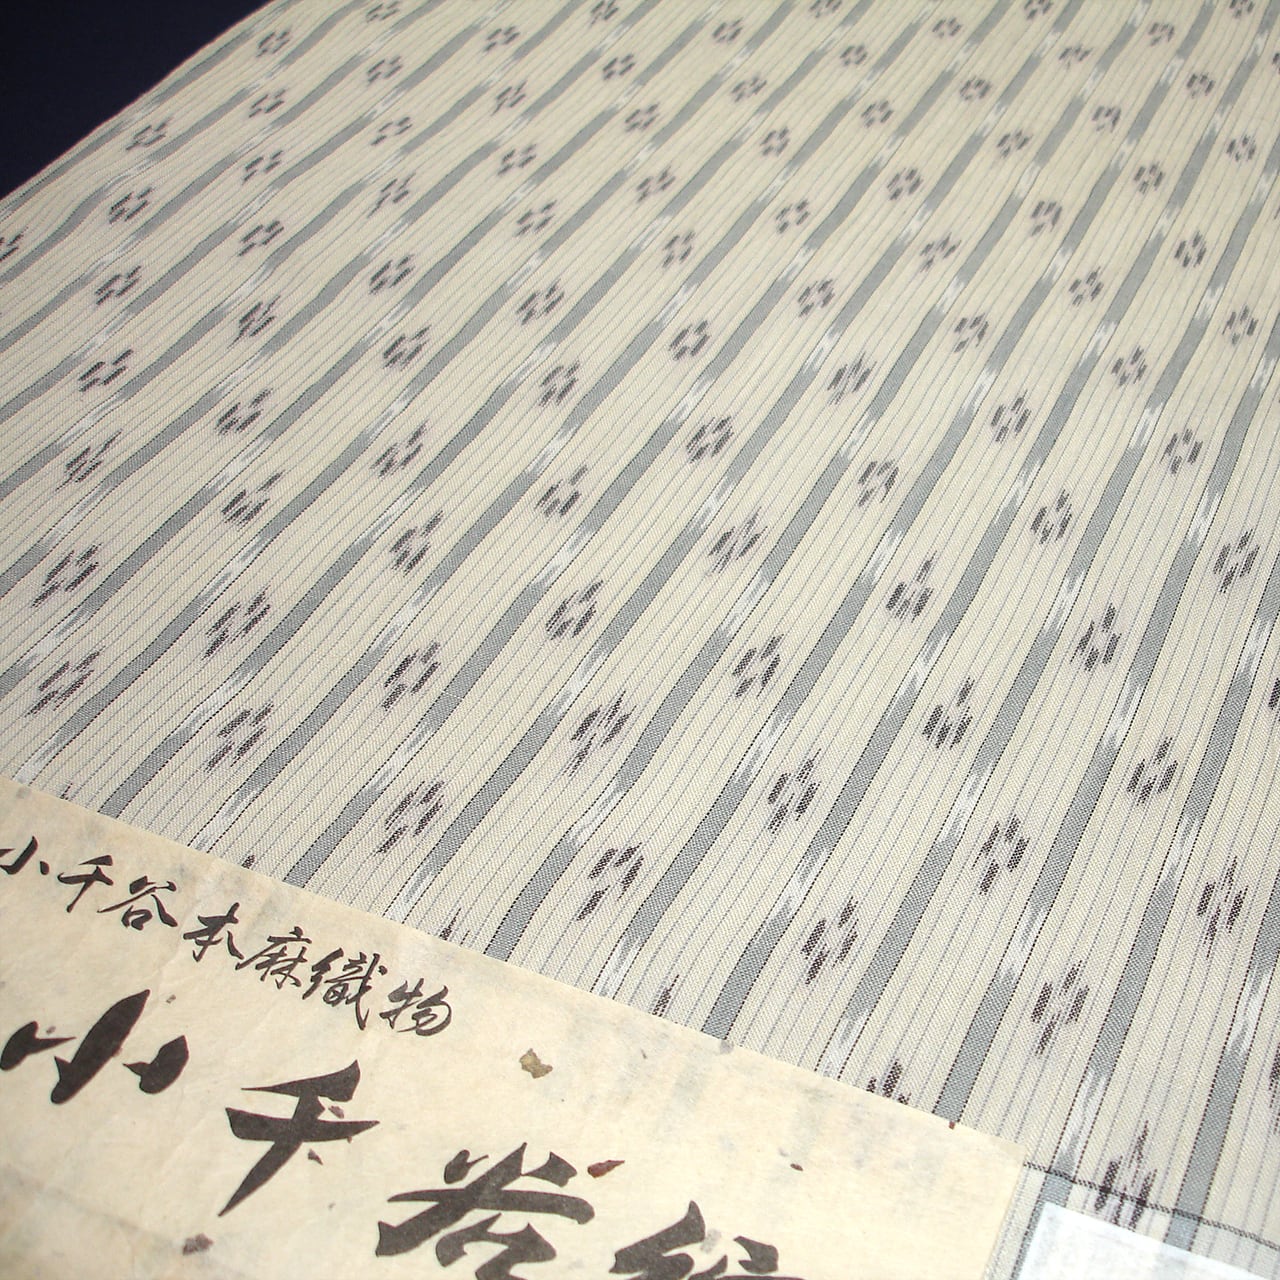 小千谷本麻織物
小千谷